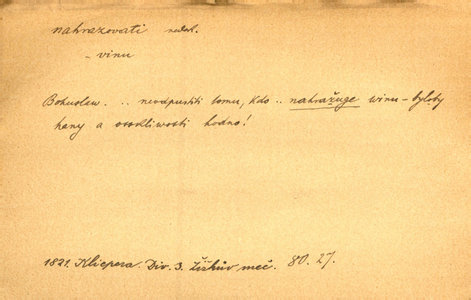 nahrazovati nedok.
- vinu
Bohuslaw. .. neodpustiti tomu, kdo .. nahražuge winu – byloby
hany a osskliwosti hodno!
1821. Klicpera. Div. 3. Žižkův meč. 80. 27.